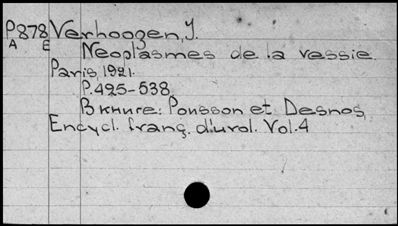 P878 Verhoogen, J.
A E
Neoplasmes de la vessie.
Paris, 1921.
P. 425-538.
В книге: Pousson et Desnos
Encycl. franç. d'urol. Vol. 4